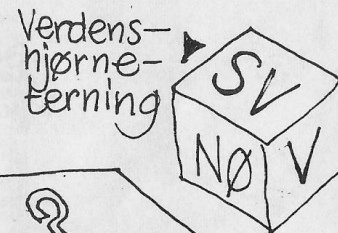 Verdens-
hjørne-
terning
SV
NØ
V
?